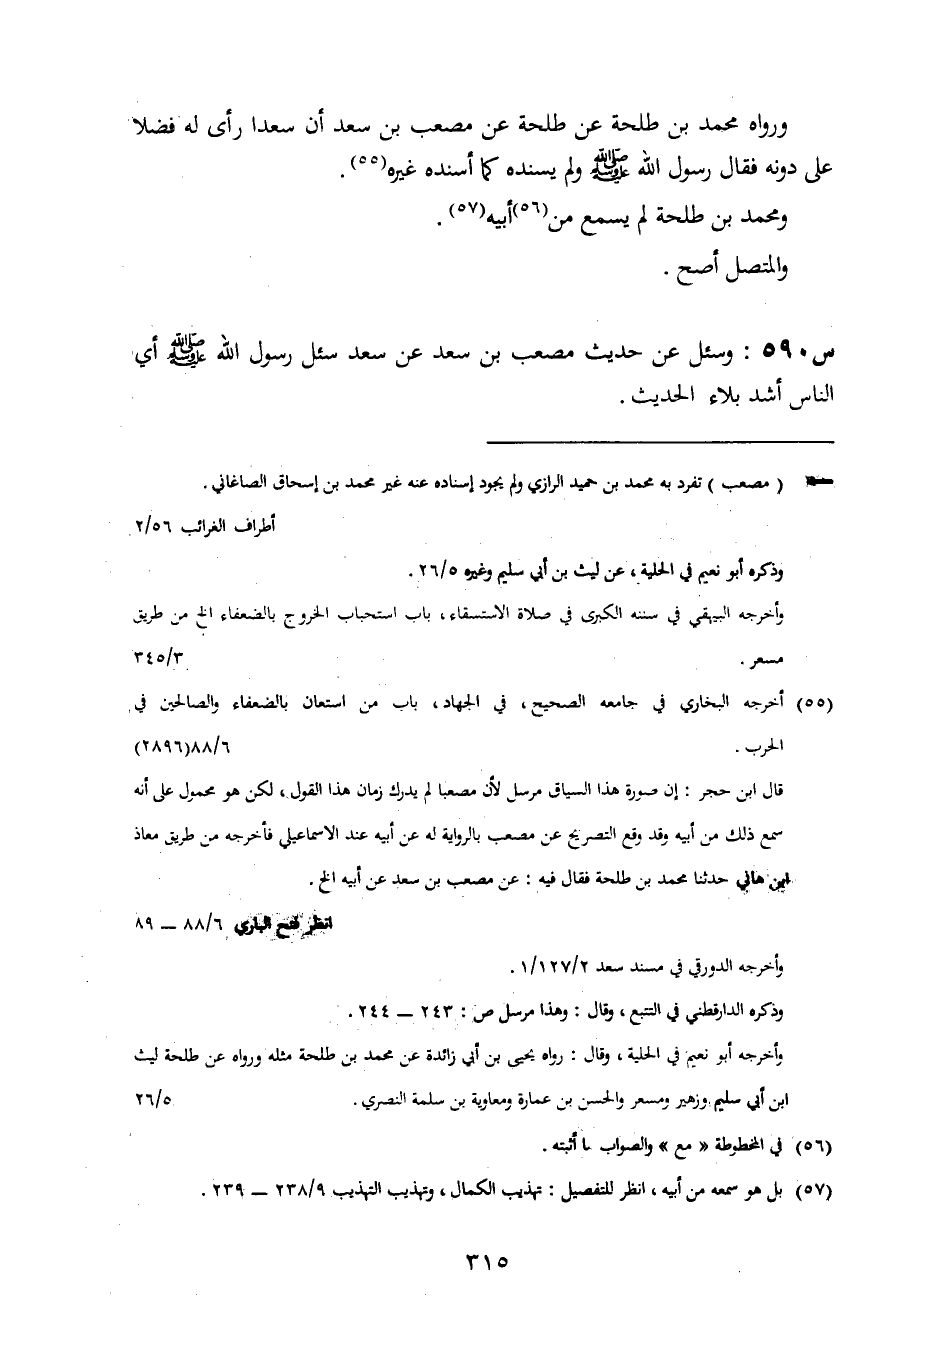 ورواه محمد بن طلحة عن طلحة عن مصعب بن سعد أن سعدا رأى له فضلا
على دونه فقال رسول الله ﷺ ولم يسنده كما أسنده غيره(٥٥) .
ومحمد بن طلحة لم يسمع من(٥٦)أبيه(٥٧) .
والمتصل أصح .
س٥٩٠ : وسئل عن حديث مصعب بن سعد عن سعد سئل رسول الله ﷺ أي
الناس أشد بلاء الحديث .
( مصعب ) تفرد به محمد بن حميد الرازي ولم يجود إسناده عنه غير محمد بن إسحاق الصاغاني .
أطراف الغرائب ٢/٥٦
وذكره أبو نعيم في الحلية ، عن ليث بن أبي سليم وغيره ٢٦/٥ .
وأخرجه البيهقي في سننه الكبرى في صلاة الاستسقاء ، باب استحباب الخروج بالضعفاء الخ من طريق
مسعر . ٣٤٥/٣
(٥٥) أخرجه البخاري في جامعه الصحيح ، في الجهاد ، باب من استعان بالضعفاء والصالحين في
الحرب . ٨٨/٦(٢٨٩٦)
قال ابن حجر : إن صورة هذا السياق مرسل لأن مصعبا لم يدرك زمان هذا القول ، لكن هو محمول على أنه
سمع ذلك من أبيه وقد وقع التصريح عن مصعب بالرواية له عن أبيه عند الاسماعيلي فأخرجه من طريق معاذ
ابن هاني حدثنا محمد بن طلحة فقال فيه : عن مصعب بن سعد عن أبيه الخ .
انظر فتح الباري ٨٨/٦ — ٨٩
وأخرجه الدورقي في مسند سعد ١/١٢٧/٢ .
وذكره الدارقطني في التتبع ، وقال : وهذا مرسل ص : ٢٤٣ — ٢٤٤ .
وأخرجه أبو نعيم في الحلية ، وقال : رواه يحيى بن أبي زائدة عن محمد بن طلحة مثله ورواه عن طلحة ليث
ابن أبي سليم وزهير ومسعر والحسن بن عمارة ومعاوية بن سلمة النصري . ٢٦/٥
(٥٦) في المخطوطة « مع » والصواب ما أثبته .
(٥٧) بل هو سمعه من أبيه ، انظر للتفصيل : تهذيب الكمال ، وتهذيب التهذيب ٢٣٨/٩ — ٢٣٩ .
٣١٥